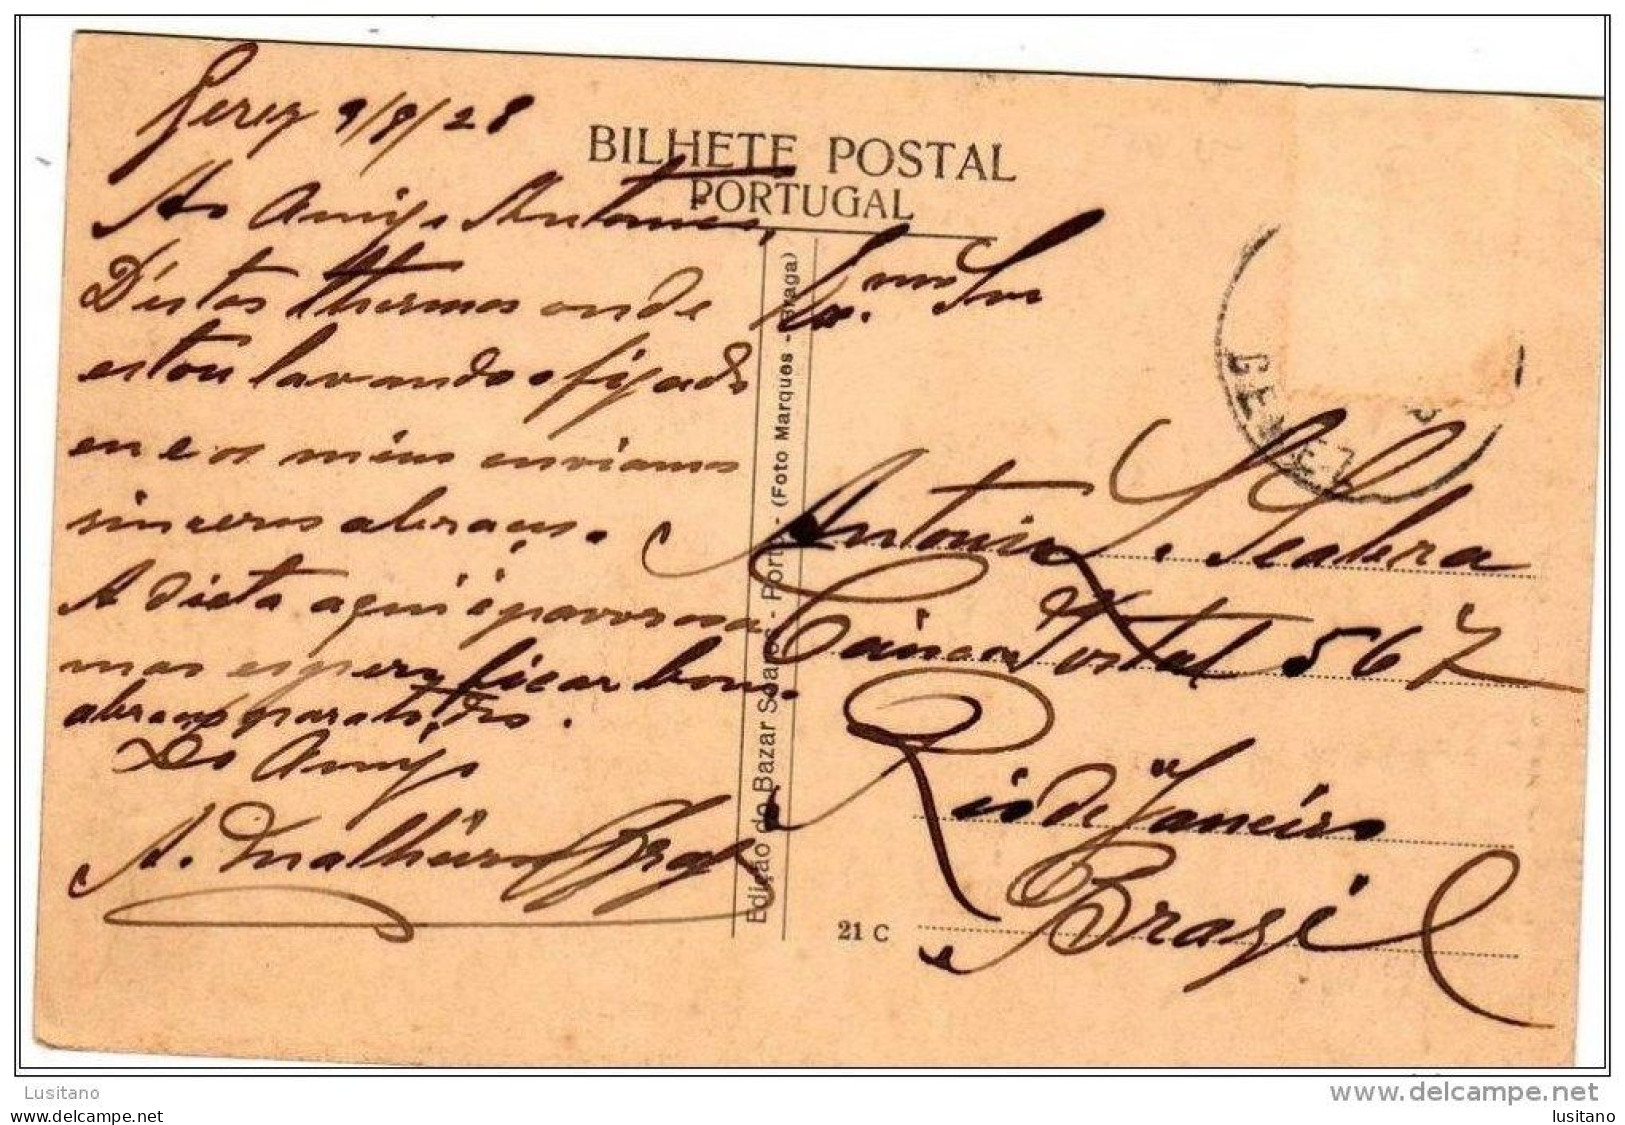 Gerez 9/8/28
Ao Amigo Antonio,
D'estas thermas onde
estou lavando o figado
eu e os meus enviamos
sinceros abraços.
A dieta aqui é pavorosa
mas espero ficar bom.
abraços para todos.
Do Amigo
A. Malheiro
BILHETE POSTAL
PORTUGAL
Edição do Bazar Soares - Porto - (Foto Marques - Braga)
Ex.mo Snr
Antonio S. Seabra
Caixa Postal 567
Rio de Janeiro
Brazil
21 C
GEREZ
Lusitano
www.delcampe.net
lusitano
lusitano